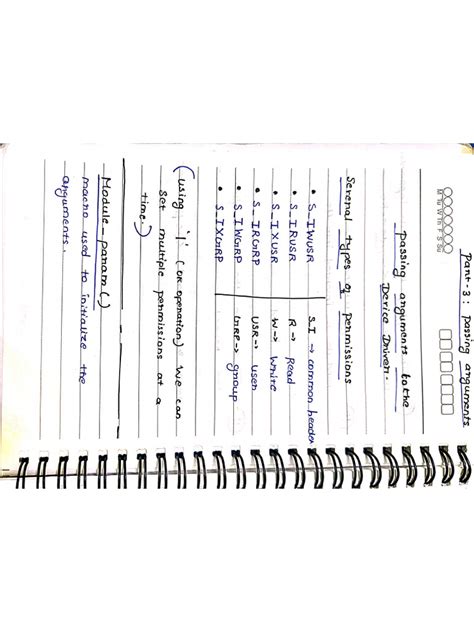 Part-3: Passing arguments
M Tu W Th F S Su
Passing arguments to the
Device Driver.
Several types of permissions
• S_IWUSR
• S_IRUSR
• S_IXUSR
• S_IRGRP
• S_IWGRP
• S_IXGRP
S_I → common header
R → Read
W → Write
USR → user
GRP → group
(using '|' (OR operation) we can
set multiple permissions at a
time.)
Module_param()
macro used to initialize the
arguments.